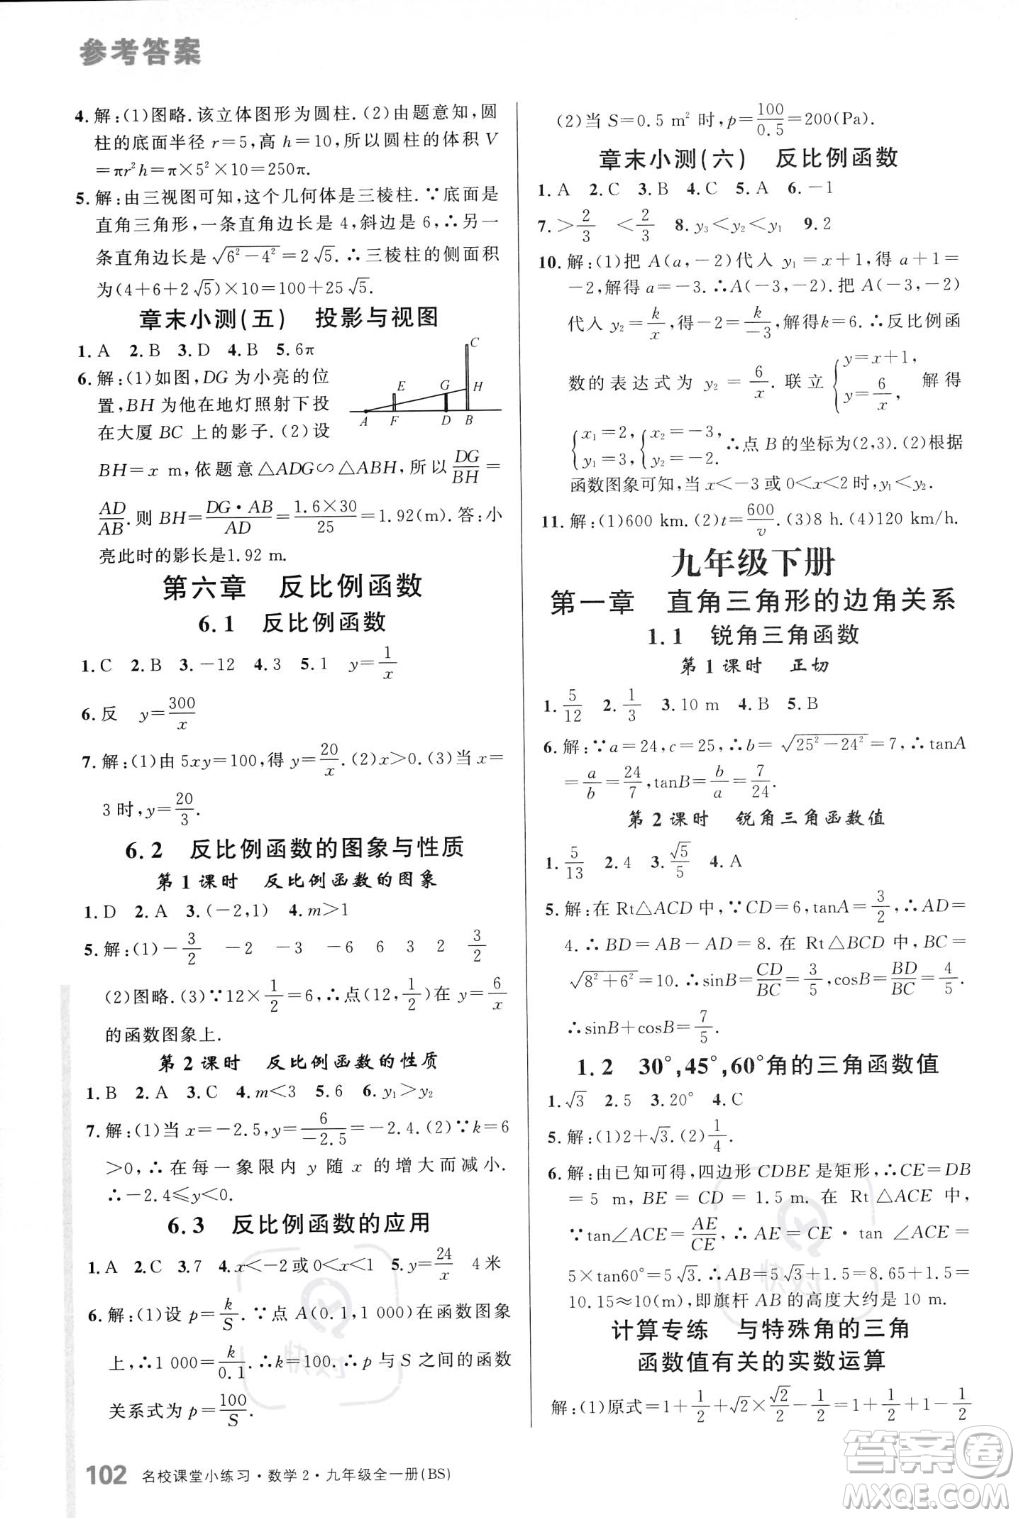 参考答案
4.解:(1)图略.该立体图形为圆柱.(2)由题意知,圆
柱的底面半径 r=5,高 h=10,所以圆柱的体积 V
=πr²h=π×5²×10=250π.
5.解:由三视图可知,这个几何体是三棱柱.∵底面是
直角三角形,一条直角边长是 4,斜边是 6,∴另一条
直角边长是 √(6²-4²)=2√5.∴三棱柱的侧面积
为(4+6+2√5)×10=100+20√5.
章末小测(五) 投影与视图
1.A 2.B 3.D 4.B 5.6π
6.解:(1)如图,DG为小亮的位
置,BH为他在地灯照射下投
在大厦 BC 上的影子.(2)设
BH=x m,依题意△ADG∽△ABH,所以DG/BH=
AD/AB.则 BH=DG·AB/AD=1.6×30/25=1.92(m).答:小
亮此时的影长是1.92 m.
A F D B E G H C
第六章 反比例函数
6.1 反比例函数
1.C 2.B 3.-12 4.3 5.1 y=1/x
6.反 y=300/x
7.解:(1)由 5xy=100,得 y=20/x.(2)x>0.(3)当 x=
3 时,y=20/3.
6.2 反比例函数的图象与性质
第1课时 反比例函数的图象
1.D 2.A 3.(-2,1) 4.m>1
5.解:(1)-3/2 -2 -3 -6 6 3 2 3/2
(2)图略.(3)∵12×1/2=6,∴点(12,1/2)在 y=6/x
的函数图象上.
第2课时 反比例函数的性质
1.B 2.A 3.C 4.m<3 5.6 6.y₁>y₂
7.解:(1)当 x=-2.5,y=6/-2.5=-2.4.(2)∵k=6
>0,∴此函数在每一象限内 y 随 x 的增大而减小.
∴-2.4≤y<0.
6.3 反比例函数的应用
1.A 2.C 3.7 4.x<-2或0<x<1 5.y=24/x 4米
6.解:(1)设 p=k/S.∵点 A(0.1,1 000)在函数图象
上,∴1 000=k/0.1.∴k=100.∴p 与 S 之间的函数
关系式为 p=100/S.
(2)当 S=0.5 m²时,p=100/0.5=200(Pa).
章末小测(六) 反比例函数
1.A 2.C 3.B 4.C 5.A 6.-1
7.>2/3 <2/3 8.y₃<y₂<y₁ 9.2
10.解:(1)把 A(a,-2)代入 y₁=x+1,得 a+1=
-2,解得 a=-3.∴A(-3,-2).把A(-3,-2)
代入 y₂=k/x,得-2=k/-3,解得k=6.∴反比例函
数的表达式为 y₂=6/x.联立{y=x+1,y=6/x,解得
{x₁=2,y₁=3,{x₂=-3,y₂=-2.∴点 B 的坐标为(2,3).(2)根据
函数图象可知,当 x<-3或0<x<2 时,y₁<y₂.
11.解:(1)600 km.(2)t=600/v.(3)8 h.(4)120 km/h.
九年级下册
第一章 直角三角形的边角关系
1.1 锐角三角函数
第1课时 正切
1.5/12 2.1/3 3.10 m 4.B 5.B
6.解:∵a=24,c=25,∴b=√(25²-24²)=7,∴tanA
=a/b=24/7,tanB=b/a=7/24.
第2课时 锐角三角函数值
1.5/13 2.4 3.√5/5 4.A
5.解:在 Rt△ACD 中,∵CD=6,tanA=3/2,∴AD=
4.∴BD=AB-AD=8.在 Rt△BCD 中,BC=
√(8²+6²)=10.∴sinB=CD/BC=3/5,cosB=BD/BC=4/5.
∴sinB+cosB=7/5.
1.2 30°,45°,60°角的三角函数值
1.√3 2.5 3.20° 4.C
5.解:(1)2+√3.(2)1/4.
6.解:由已知可得,四边形 CDBE 是矩形,∴CE=DB
=5 m,BE=CD=1.5 m.在 Rt△ACE 中,
∵tan∠ACE=AE/CE,∴AE=CE·tan∠ACE=
5×tan60°=5√3,∴AB=AE+BE=8.65+1.5=
10.15≈10(m),即旗杆 AB 的高度大约是 10 m.
计算专练 与特殊角的三角
函数值有关的实数运算
解:(1)原式=1+1/2+√2×√2/2-1/2=1+1/2+1-1/2
102 名校课堂小练习·数学2·九年级全一册(BS)
答案圈
MXQE.COM